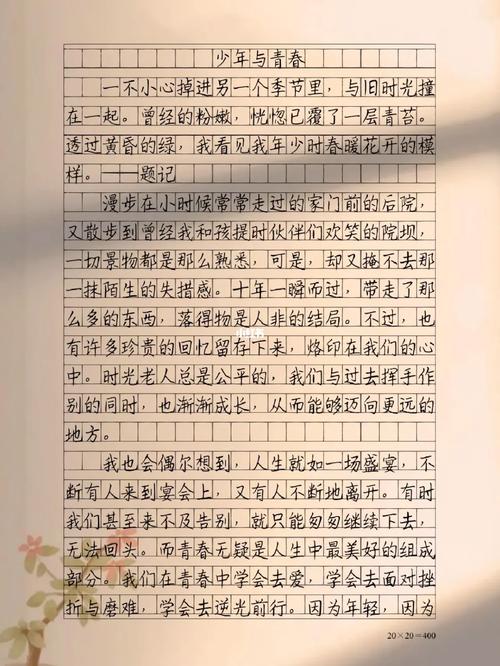 少年与青春
一不小心掉进另一个季节里，与旧时光撞
在一起。曾经的粉嫩，恍惚已覆了一层青苔。
透过黄昏的绿，我看见我年少时春暖花开的模
样。——题记
漫步在小时候常常走过的家门前的后院，
又散步到曾经我和孩提时伙伴们欢笑的院坝，
一切景物都是那么熟悉，可是，却又掩不去那
一抹陌生的失措感。十年一瞬而过，带走了那
么多的东西，落得物是人非的结局。不过，也
有许多珍贵的回忆留存下来，烙印在我们的心
中。时光老人总是公平的，我们与过去挥手作
别的同时，也渐渐成长，从而能够迈向更远的
地方。
我也会偶尔想到，人生就如一场盛宴，不
断有人来到宴会上，又有人不断地离开。有时
我们甚至来不及告别，就只能匆匆继续下去，
无法回头。而青春无疑是人生中最美好的组成
部分。我们在青春中学会去爱，学会去面对挫
折与磨难，学会去逆光前行。因为年轻，因为
20×20=400
小红书